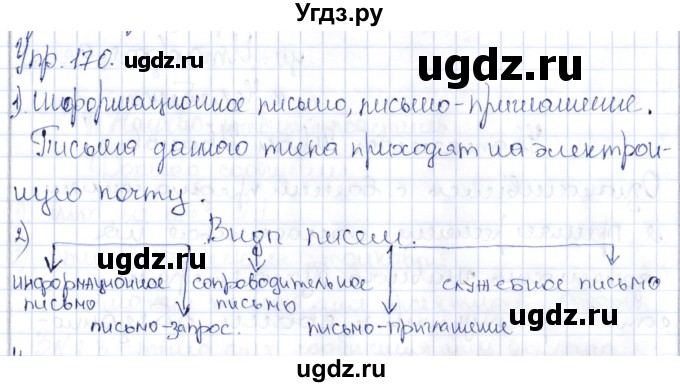 Угдз.ру
Упр. 170.
ugdz.ru
ugdz.ru
1) Информационное письмо, письмо-приглашение.
Письма данного типа приходят на электрон-
ную почту.
ugdz.ru
2) Виды писем.
ugdz.ru
информационное сопроводительное служебное письмо
письмо письмо
письмо-запрос. письмо-приглашение
ugdz.ru
ugdz.ru